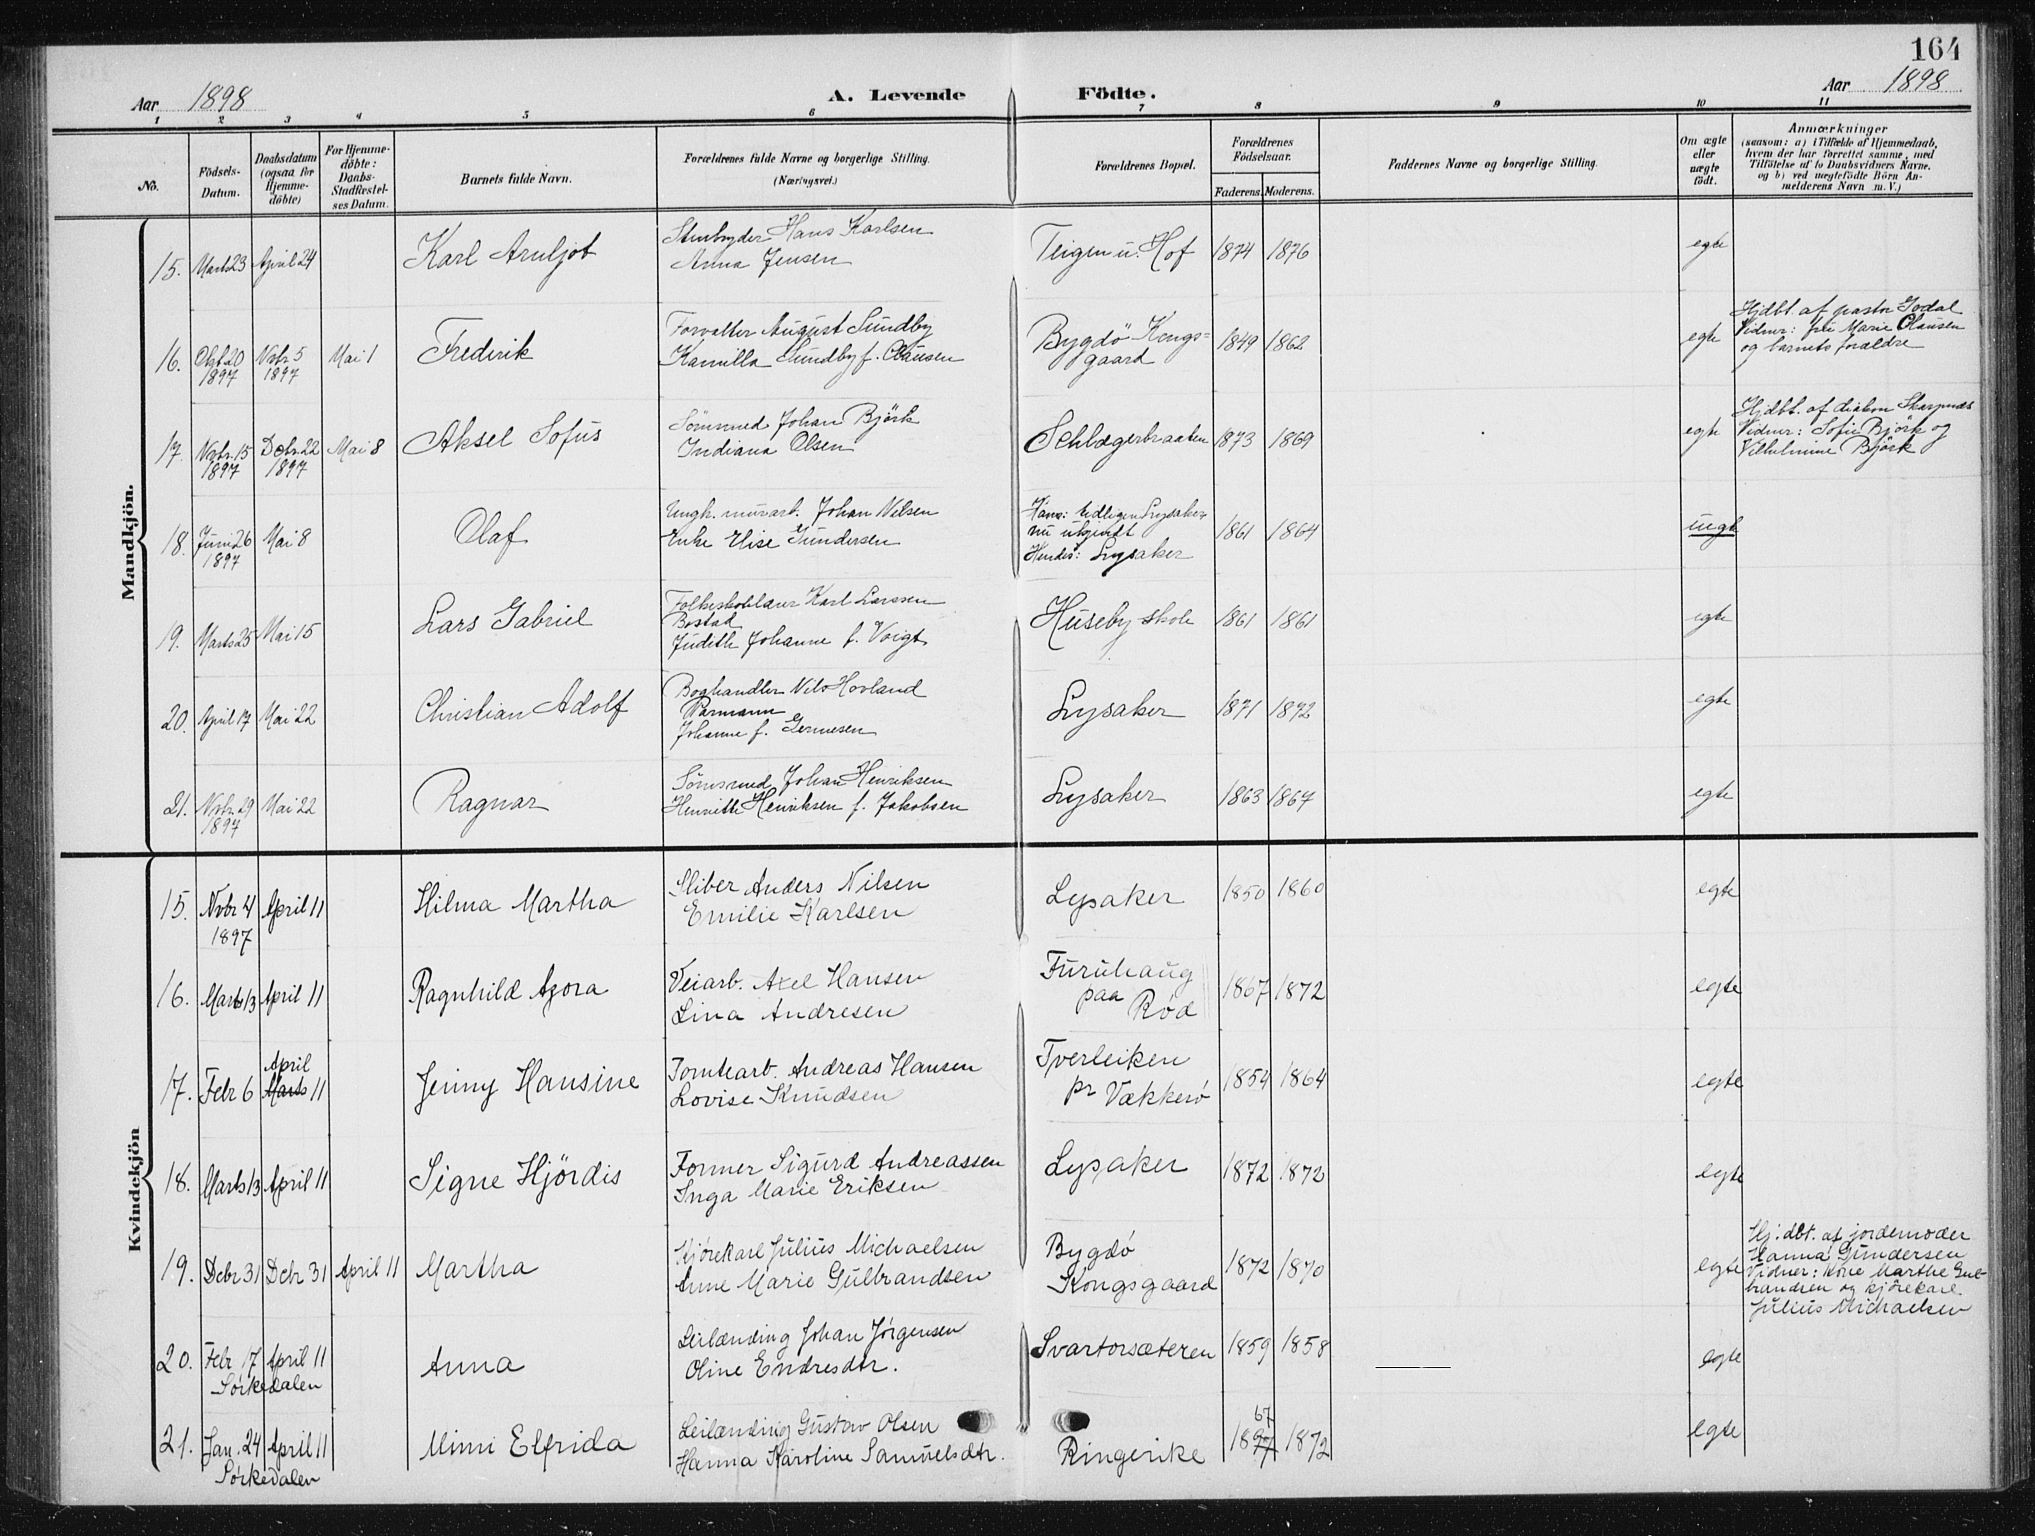 164
Aar 1898
A. Levende Födte.
Aar 1898
1 2 3 4 5 6 7 8 9 10 11
No.
Födsels-
Datum.
Daabsdatum
(ogsaa for
Hjemme-
döbte)
For Hjemme-
döbte:
Daabs-
Stadfæstel-
ses Datum.
Barnets fulde Navn.
Forældrenes fulde Navne og borgerlige Stilling.
(Næringsvei.)
Forældrenes Bopæl.
Forældrenes
Födselsaar.
Faderens. Moderens.
Faddernes Navne og borgerlige Stilling.
Om ægte
eller
uægte
födt.
Anmærkninger
(saasom: a) i Tilfælde af Hjemmedaab,
hvem der har forrettet samme, med
Tilföielse af to Daabsvidners Navne,
og b) ved uægtefödte Börn An-
melderens Navn m. V.)
Mandkjön.
15. Marts 23 April 24 Karl Arnljot
Stenbryder Hans Karlsen
Anna Jensen
Teigen u. Hof 1874 1876 egte
16. Oktb 20 1897 Nvbr 5 1897 Mai 1 Frederik
Forvalter August Sundby
Kamilla Sundby f. Clausen
Bygdö Kongs-
gaard
1849 1862 egte
Hjdbt. af pastor Godal
Vidner: frk Marie Clausen
og barnets forældre
17. Nvbr. 15 1897 Dcbr. 22 1897 Mai 8 Aksel Sofus
Sömsmed Johan Björk
Indiana Olsen
Schlægerbraaten 1873 1869 egte
Hjdbt. af diakon Skarpnæs
Vidner: Sofie Björk og
Vilhelmine Björk
18. Juni 26 1897 Mai 8 Olaf
Ungk. murarb. Johan Nilsen
Enke Elise Gundersen
Hans: tidligen Lysaker
nu ubgivdt
Hendes: Lysaker
1861 1864 uegt
19. Marts 25 Mai 15 Lars Gabriel
Folkeskolelærer Karl Larssen
Bostad
Judith Johanne f. Voigt
Huseby skole 1861 1861 egte
20. April 17 Mai 22 Christian Adolf
Boghandler Nils Hovland
Parmann
Johanne f. Germesen
Lysaker 1871 1872 egte
21. Nvbr. 29 1897 Mai 22 Ragnar
Sömsmed Johan Henriksen
Henritte Henriksen f. Jakobsen
Lysaker 1863 1867 egte
Kvindekjön
15. Nvbr 4 1897 April 11 Hilma Martha
Sliber Anders Nilsen
Emilie Karlsen
Lysaker 1850 1860 egte
16. Marts 13 April 11 Ragnhild Azora
Veiarb. Axel Hansen
Lina Andresen
Furuhaug
paa Rød
1867 1872 egte
17. Febr 6 April Marts 11 Jenny Hansine
Tomtearb. Andreas Hansen
Lovise Knudsen
Tverleiken
pr Vækkerö
1854 1864 egte
18. Marts 13 April 11 Signe Hjördis
Former Sigurd Andreassen
Inga Marie Eriksen
Lysaker 1872 1872 egte
19. Dcbr 31 Dcbr 31 April 11 Martha
Kjörekarl Julius Michaelsen
Anne Marie Gulbrandsen
Bygdö
Kongsgaard
1872 1870 egte
Hj. dbt. af jordemoder
Hanna Gundersen
Vidner: kone Marthe Gul-
brandsen og kjörekarl
Julius Michaelsen
20. Febr 17 April 11 Anna
Sörkedalen
Leilænding Johan Jörgensen
Oline Endresdtr.
Svartorsæteren 1859 1858 egte
21. Jan. 24 April 11 Mimi Elfrida
Sörkedalen
Leilænding Gustav Olsen
Hanna Karoline Samuelsdtr.
Ringerike 1897 67 1872 egte